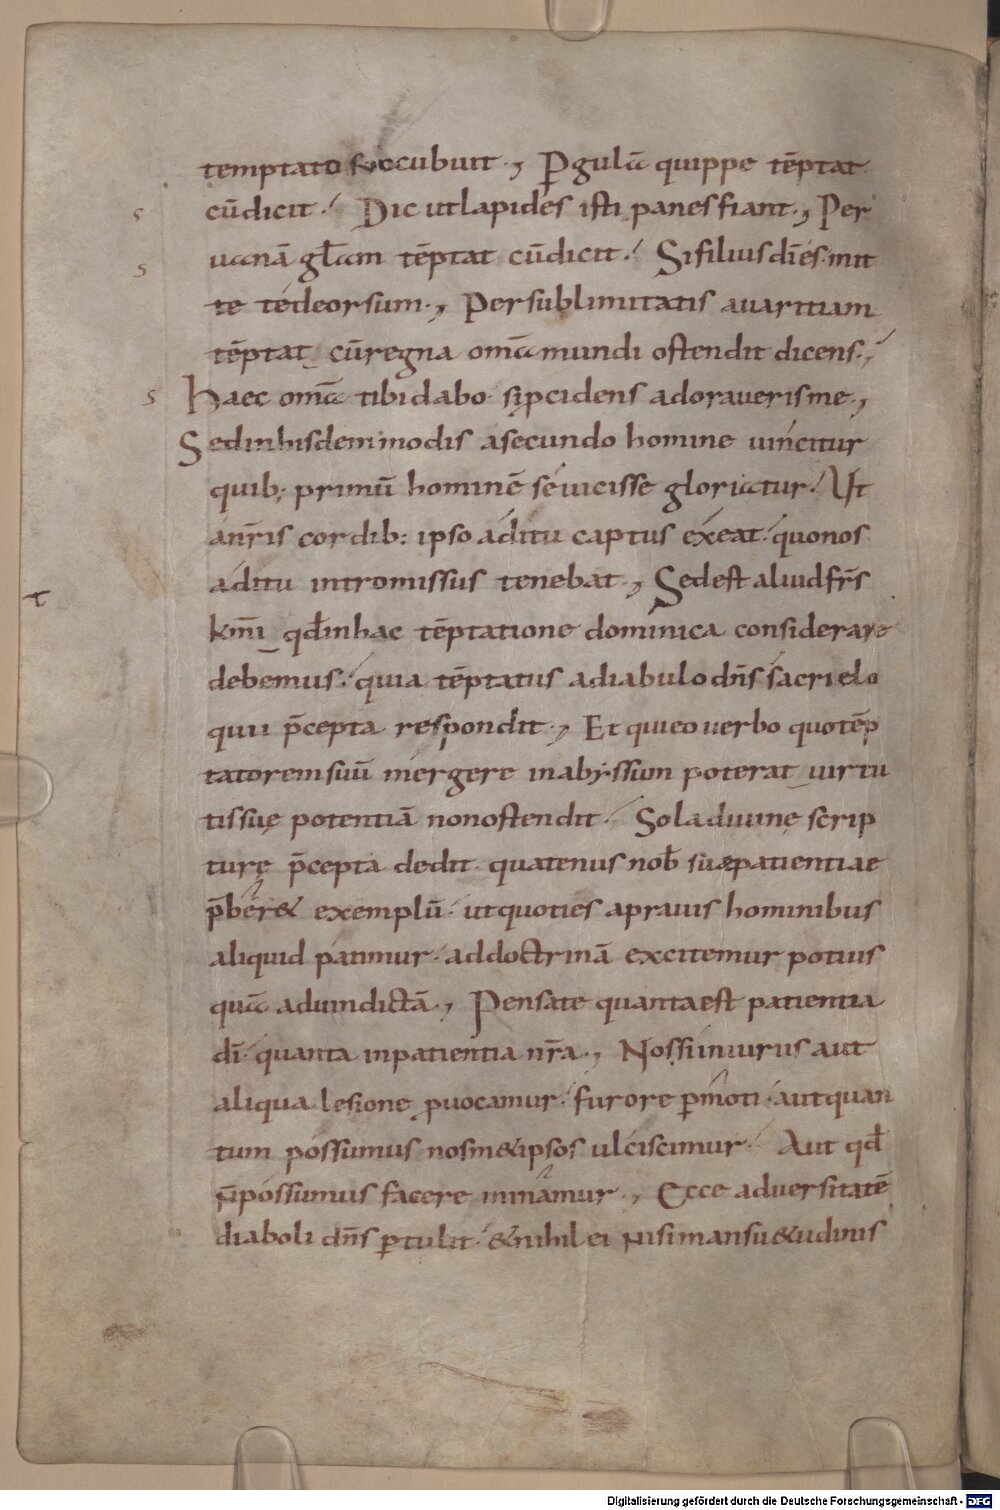 temptato succubuit., P̱gulā quippe tēptat
cūdicit. Dic utlapides isti panesfiant., Per
uanā gl̄am tēptat cūdicit. Sifiliusdīes mit
te tedeorsum., Persublimitatis auaritiam
tēptat cūregna om̄a mundi ostendit dicens.,
s haec om̄a tibi dabo. sip̱cidens adoraueris me.,
Sedinhisdem modis asecundo homine uincitur
quib; primū hominē seuicisse gloriatur. Ut
anr̄is cordib: ipso aditu captus exeat. quonos
aditu intromissus tenebat., Sedest aliud fr̄s
km̄i qd̄inhac tēptatione dominica considerare
debemus. quia tēptatus adiabulo dn̄s sacri elo
quii p̄cepta respondit., Et quieo uerbo quotēp
tatoremsuū mergere inabyssum poterat uirtu
tissuę potentiā nonostendit. Sola diuinę scrip
turę p̄cepta dedit. quatenus nob̄ suaepatientiae
p̄ber& exemplū. utquoties aprauis hominibus
aliquid patimur. addoctrinā excitemur potius
quā aduindictā., Pensate quantaest patientia
dī. quanta inpatientia nr̄a., Nossiiniuriis aut
aliqua lesione p̱uocamur. furore p̱moti. autquan
tum possumus nosm&ipsos ulciscimur. Aut qd̄
n̄possumus facere minamur., Ecce aduersitatē
diaboli dn̄s p̱tulit. &nihil ei nisimansu&udinis
s
s
t
Digitalisierung gefördert durch die Deutsche Forschungsgemeinschaft - DFG